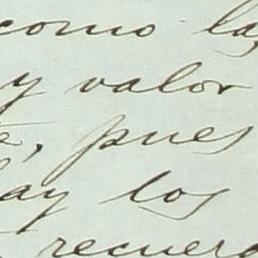 como la
y valor
, pues
ay los
recuer